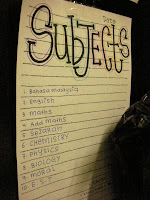 Date
SUBJECTS
1. Bahasa malaysia
2. English
3. Maths
4. Add Maths
5. Sejarah
6. CHEMISTRY
7. PHYSICS
8. BIOLOGY
9. MORAL
10. E.S.T